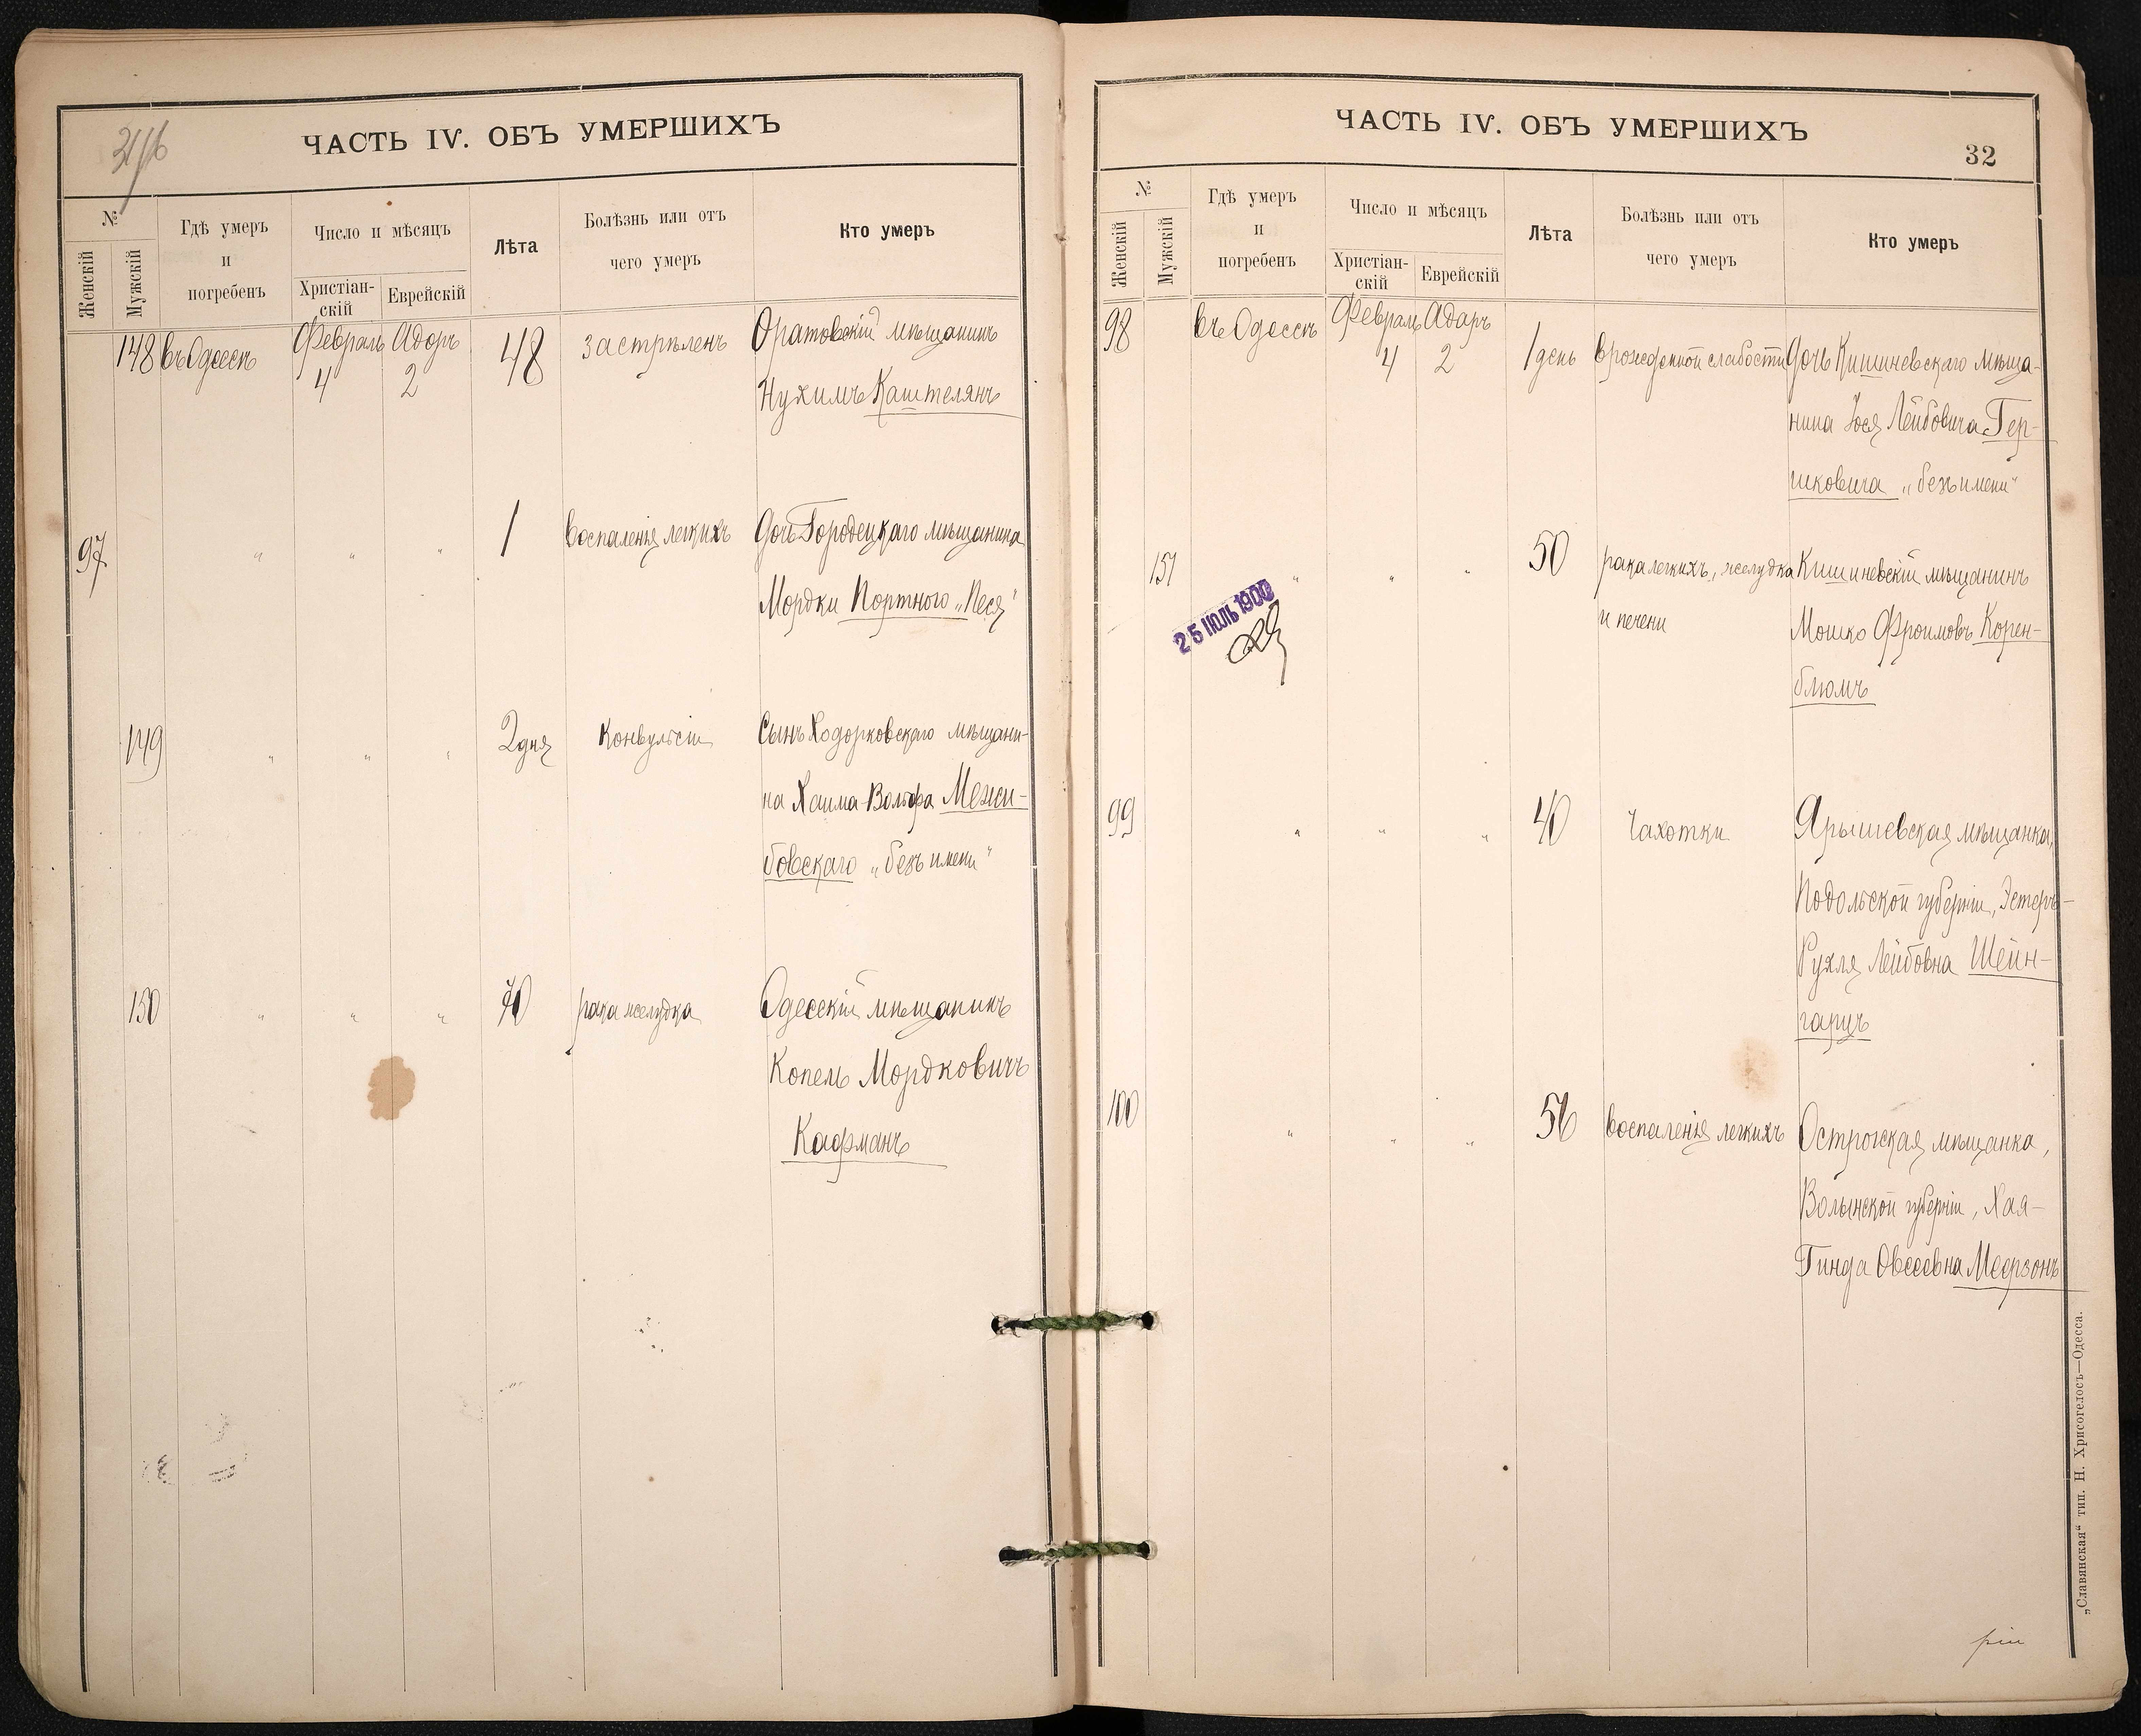 ЧАСТЬ IV. ОБЪ УМЕРШИХЪ
№
Женскій
Мужскій
Гдѣ умеръ
и
погребенъ
Число и мѣсяцъ
Христіан-
скій
Еврейскій
Лѣта
Болѣзнь или отъ
чего умеръ
Кто умеръ
148 въ Одессѣ Февраль Адаръ 48 застрѣленъ Оратовскій мѣщанинъ
4 2 Нухимъ Каштелянъ
97 „ „ „ 1 воспаленія легкихъ Дочь Городецкаго мѣщанина
Мордки Портного „Песя“
149 „ „ „ 2 дня Конвульсіи Сынъ Ходорковскаго мѣщани-
на Хаима-Вольфа Межи-
бовскаго „безъ имени“
150 „ „ „ 70 рака желудка Одесскій мѣщанинъ
Копель Мордковичъ
Кафманъ
ЧАСТЬ IV. ОБЪ УМЕРШИХЪ
32
№
Женскій
Мужскій
Гдѣ умеръ
и
погребенъ
Число и мѣсяцъ
Христіан-
скій
Еврейскій
Лѣта
Болѣзнь или отъ
чего умеръ
Кто умеръ
98 въ Одессѣ Февраль Адаръ
4 2 1 день врожденной слабости Дочь Кишиневскаго мѣща-
нина Іося Лейбовича Гер-
шковича „безъ имени“
151 „ „ „ 50 рака легкихъ, желудка Кишиневскій мѣщанинъ
25 ІЮЛЬ 1900
и печени Мошко Фроимовъ Корен-
блюмъ
99 „ „ „ 40 Чахотки Ярышевская мѣщанка,
Подольской губерніи, Эстеръ-
Рухля Лейбовна Шейн-
гарцъ
100 „ „ „ 56 воспаленія легкихъ Острогская мѣщанка,
Волынской губерніи, Хая-
Гинда Овсеевна Меерзонъ
„Славянская“ тип. Н. Хрисогелосъ—Одесса.